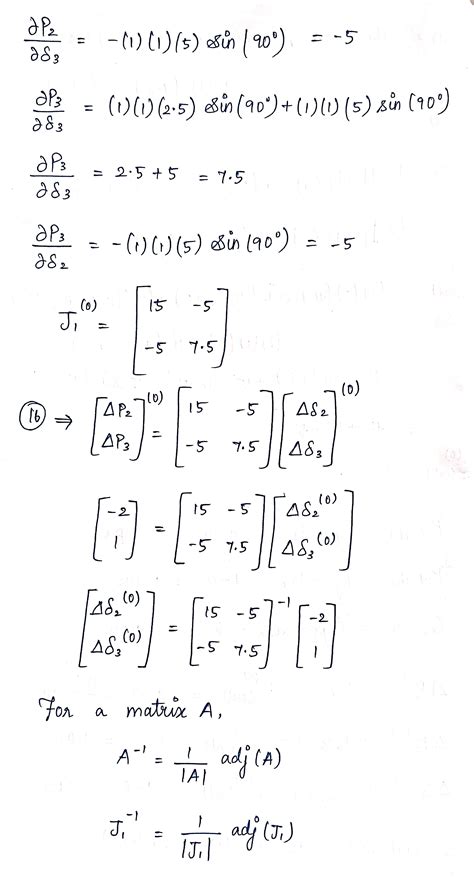 ∂P₂/∂δ₃ = -(1)(1)(5) sin(90°) = -5
∂P₃/∂δ₃ = (1)(1)(2.5) sin(90°) + (1)(1)(5) sin(90°)
∂P₃/∂δ₃ = 2.5 + 5 = 7.5
∂P₃/∂δ₂ = -(1)(1)(5) sin(90°) = -5
J₁⁽⁰⁾ = [15 -5; -5 7.5]
(16) ⇒ [ΔP₂; ΔP₃]⁽⁰⁾ = [15 -5; -5 7.5] [Δδ₂; Δδ₃]⁽⁰⁾
[-2; 1] = [15 -5; -5 7.5] [Δδ₂⁽⁰⁾; Δδ₃⁽⁰⁾]
[Δδ₂⁽⁰⁾; Δδ₃⁽⁰⁾] = [15 -5; -5 7.5]⁻¹ [-2; 1]
For a matrix A,
A⁻¹ = 1/|A| adj(A)
J₁⁻¹ = 1/|J₁| adj(J₁)